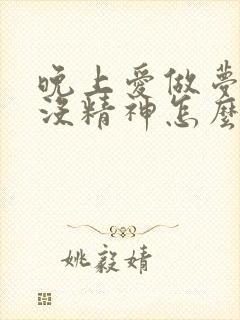 晚上愛做夢
沒精神怎麼
姚毅婧